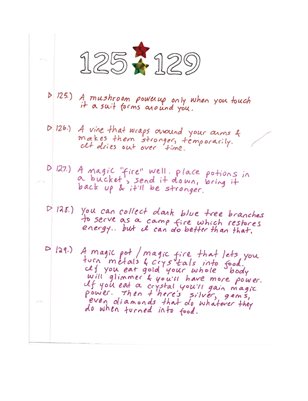 125 129
▷ 125.) A mushroom powerup only when you touch
it a suit forms around you.
▷ 126.) A vine that wraps around your arms &
makes them stronger, temporarily.
It dries out over time.
▷ 127.) A magic "fire" well. place potions in
a bucket, send it down, bring it
back up & it'll be stronger.
▷ 128.) You can collect dark blue tree branches
to serve as a camp fire which restores
energy.. but it can do better than that.
▷ 129.) A magic pot / magic fire that lets you
turn metals & crystals into food.
If you eat gold your whole body
will glimmer & you'll have more power.
If you eat a crystal you'll gain magic
power. Then there's silver, gems,
even diamonds that do whatever they
do when turned into food.